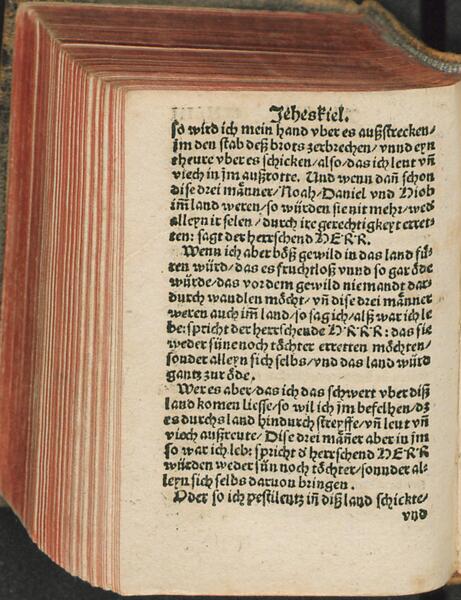 Jeheskiel.
so wird ich mein hand vber es außstrecken/
jm den stab deß brots zerbrechen/ vnnd eyn
theure vber es schicken/also/das ich leut vñ
viech in jm außrotte. Und wenn dañ schon
dise drei männer/Noah/Daniel vnd Hiob
im̃ land weren/so würden sie nit mehr/wed
alleyn ir selen/durch ire gerechtigkeyt erret-
ten: sagt der herrschend HERR.
Wenn ich aber böß gewild in das land fü-
ren würd/das es fruchtloß vnnd so gar öde
würde/das vor dem gewild niemandt dar-
durch wandlen möcht/vñ dise drei männer
weren auch im̃ land/so sag ich/alß war ich le
be:spricht der herrschende HERR: das sie
weder süne noch töchter erretten möchten/
sonder alleyn sich selbs/vnd das land würd
gantz zur öde.
Wer es aber/das ich das schwert vber diß
land komen liesse/so wil ich jm befelhen/dz
es durchs land hindurch streyffe/vñ leut vñ
viech außreute/Dise drei mañer aber in jm
so war ich leb: spricht d̕ herrschend HERR
würden weder sün noch töchter/sonnder al-
leyn sich selbs daruon bringen.
Oder so ich pestilentz iñ diß land schickte/
vnd